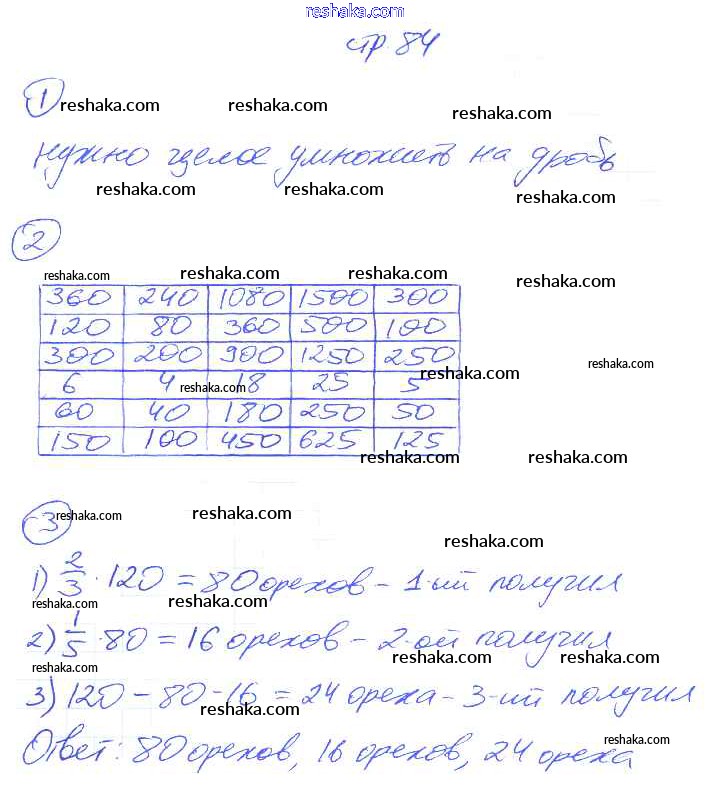 reshaka.com
стр. 84
1 reshaka.com reshaka.com reshaka.com
нужно целое умножить на дробь
reshaka.com reshaka.com reshaka.com
2
reshaka.com reshaka.com reshaka.com reshaka.com
360 240 1080 1500 300
120 80 360 500 100
300 200 900 1250 250
reshaka.com reshaka.com
6 4 18 25 5
reshaka.com
60 40 180 250 50
150 100 450 625 125
reshaka.com reshaka.com
3 reshaka.com reshaka.com reshaka.com
reshaka.com
1) 2/3 · 120 = 80 орехов – 1-ый получил
reshaka.com reshaka.com
2) 1/5 · 80 = 16 орехов – 2-ой получил
reshaka.com reshaka.com reshaka.com
3) 120 – 80 – 16 = 24 ореха – 3-ий получил
reshaka.com
Ответ: 80 орехов, 16 орехов, 24 ореха
reshaka.com